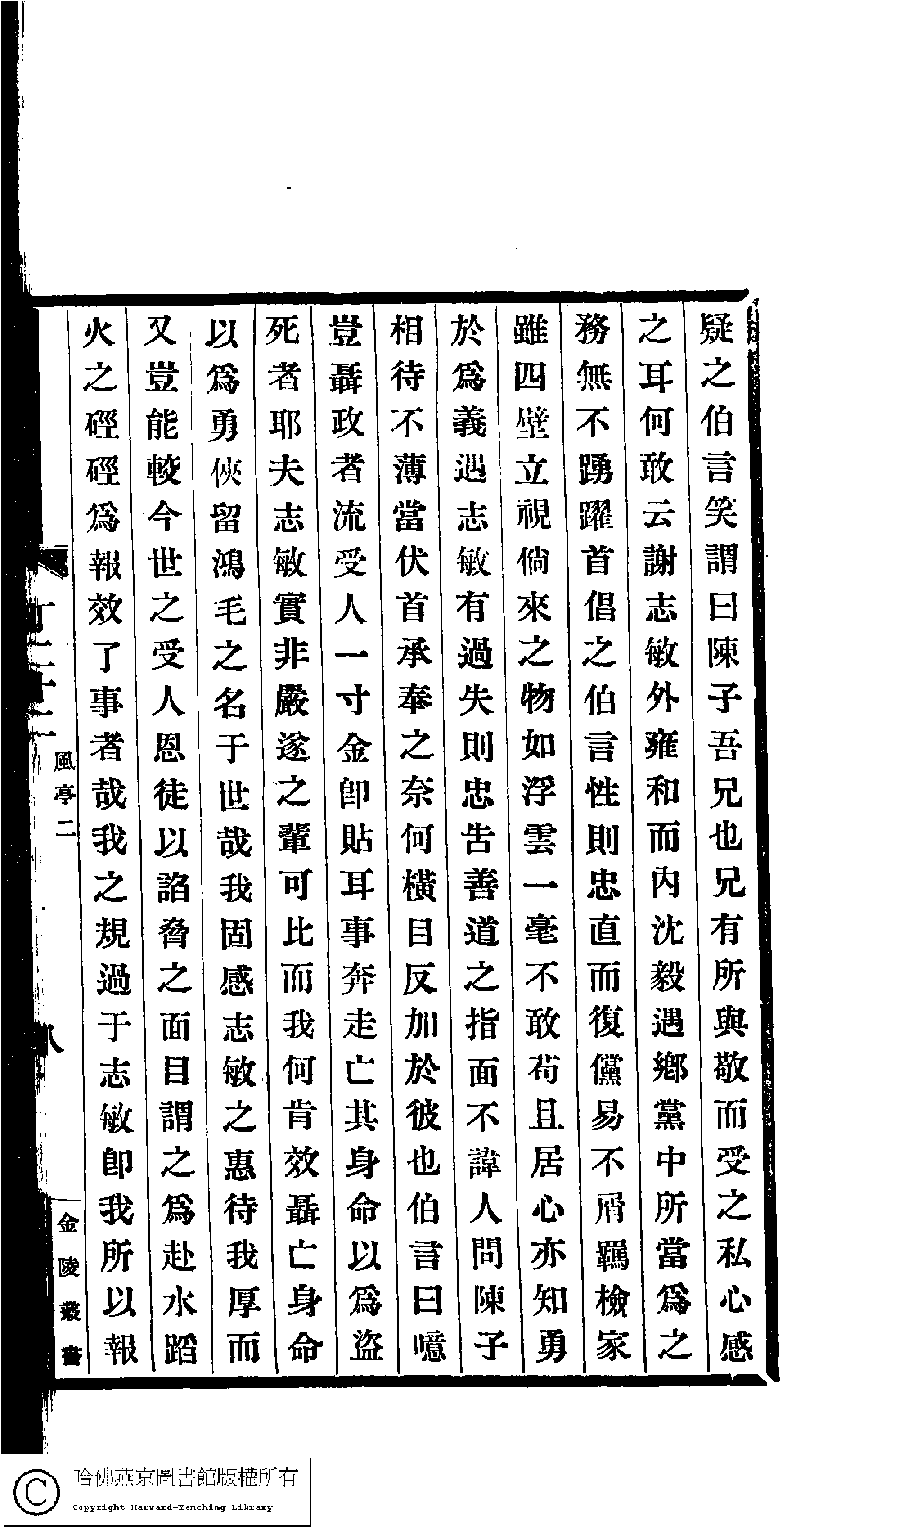 疑之伯言笑謂曰陳子吾兄也兄有所與敬而受之私心感
之耳何敢云謝志敏外雍和而內沈毅遇鄉黨中所當爲之
務無不踴躍首倡之伯言性則忠直而復儻易不屑羈檢家
雖四壁立視倘來之物如浮雲一毫不敢苟且居心亦知勇
於爲義遇志敏有過失則忠告善道之指面不諱人問陳子
相待不薄當伏首承奉之奈何橫目反加於彼也伯言曰噫
豈聶政者流受人一寸金卽貼耳事奔走亡其身命以爲盜
死者耶夫志敏實非嚴遂之輩可比而我何肯效聶亡身命
以爲勇俠留鴻毛之名于世哉我固感志敏之惠待我厚而
又豈能較今世之受人恩徒以諂脅之面目謂之爲赴水蹈
火之硜硜爲報效了事者哉我之規過于志敏卽我所以報
風亭二
八
金陵叢書
哈佛燕京圖書館版權所有
Copyright Harvard-Yenching Library